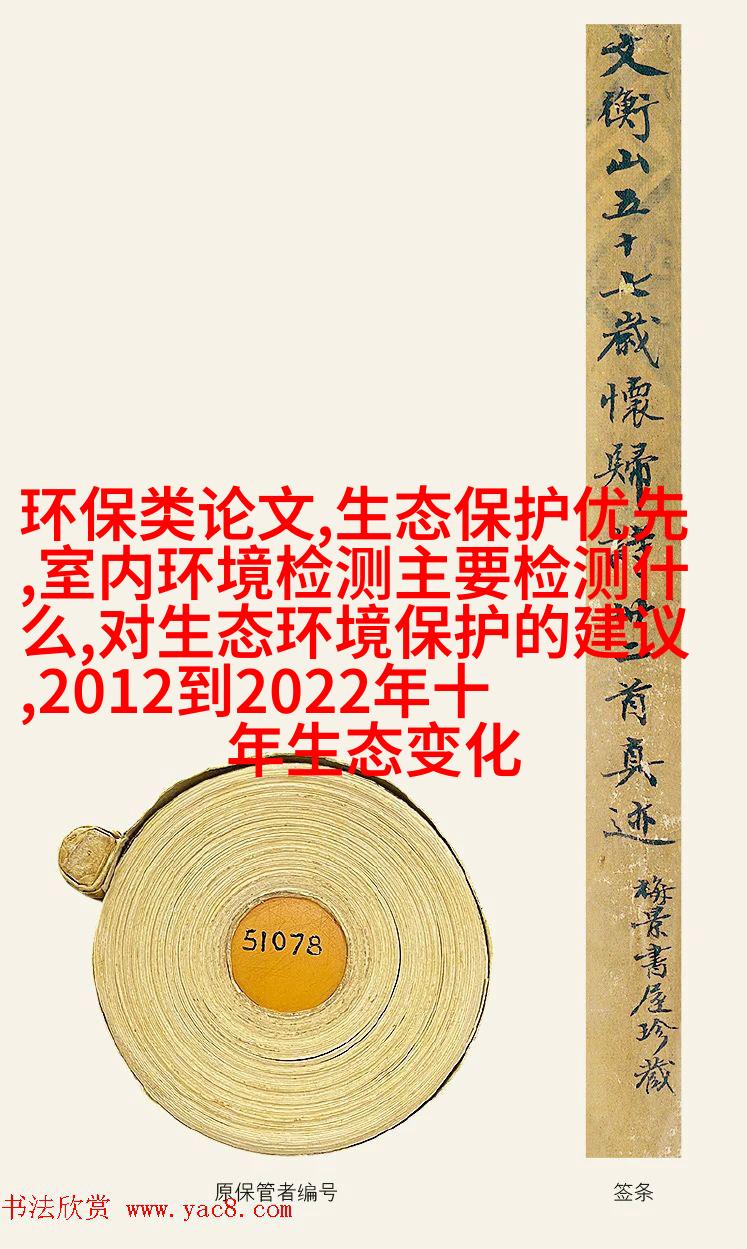 文衡山五十七歲懷歸詩卅二首真迹
梅景書屋珍藏
环保类论文,生态保护优先
,室内环境检测主要检测什
么,对生态环境保护的建议
,2012到2022年十
年生态变化
51078
原保管者编号
签条
书法欣赏 www.yac8.com